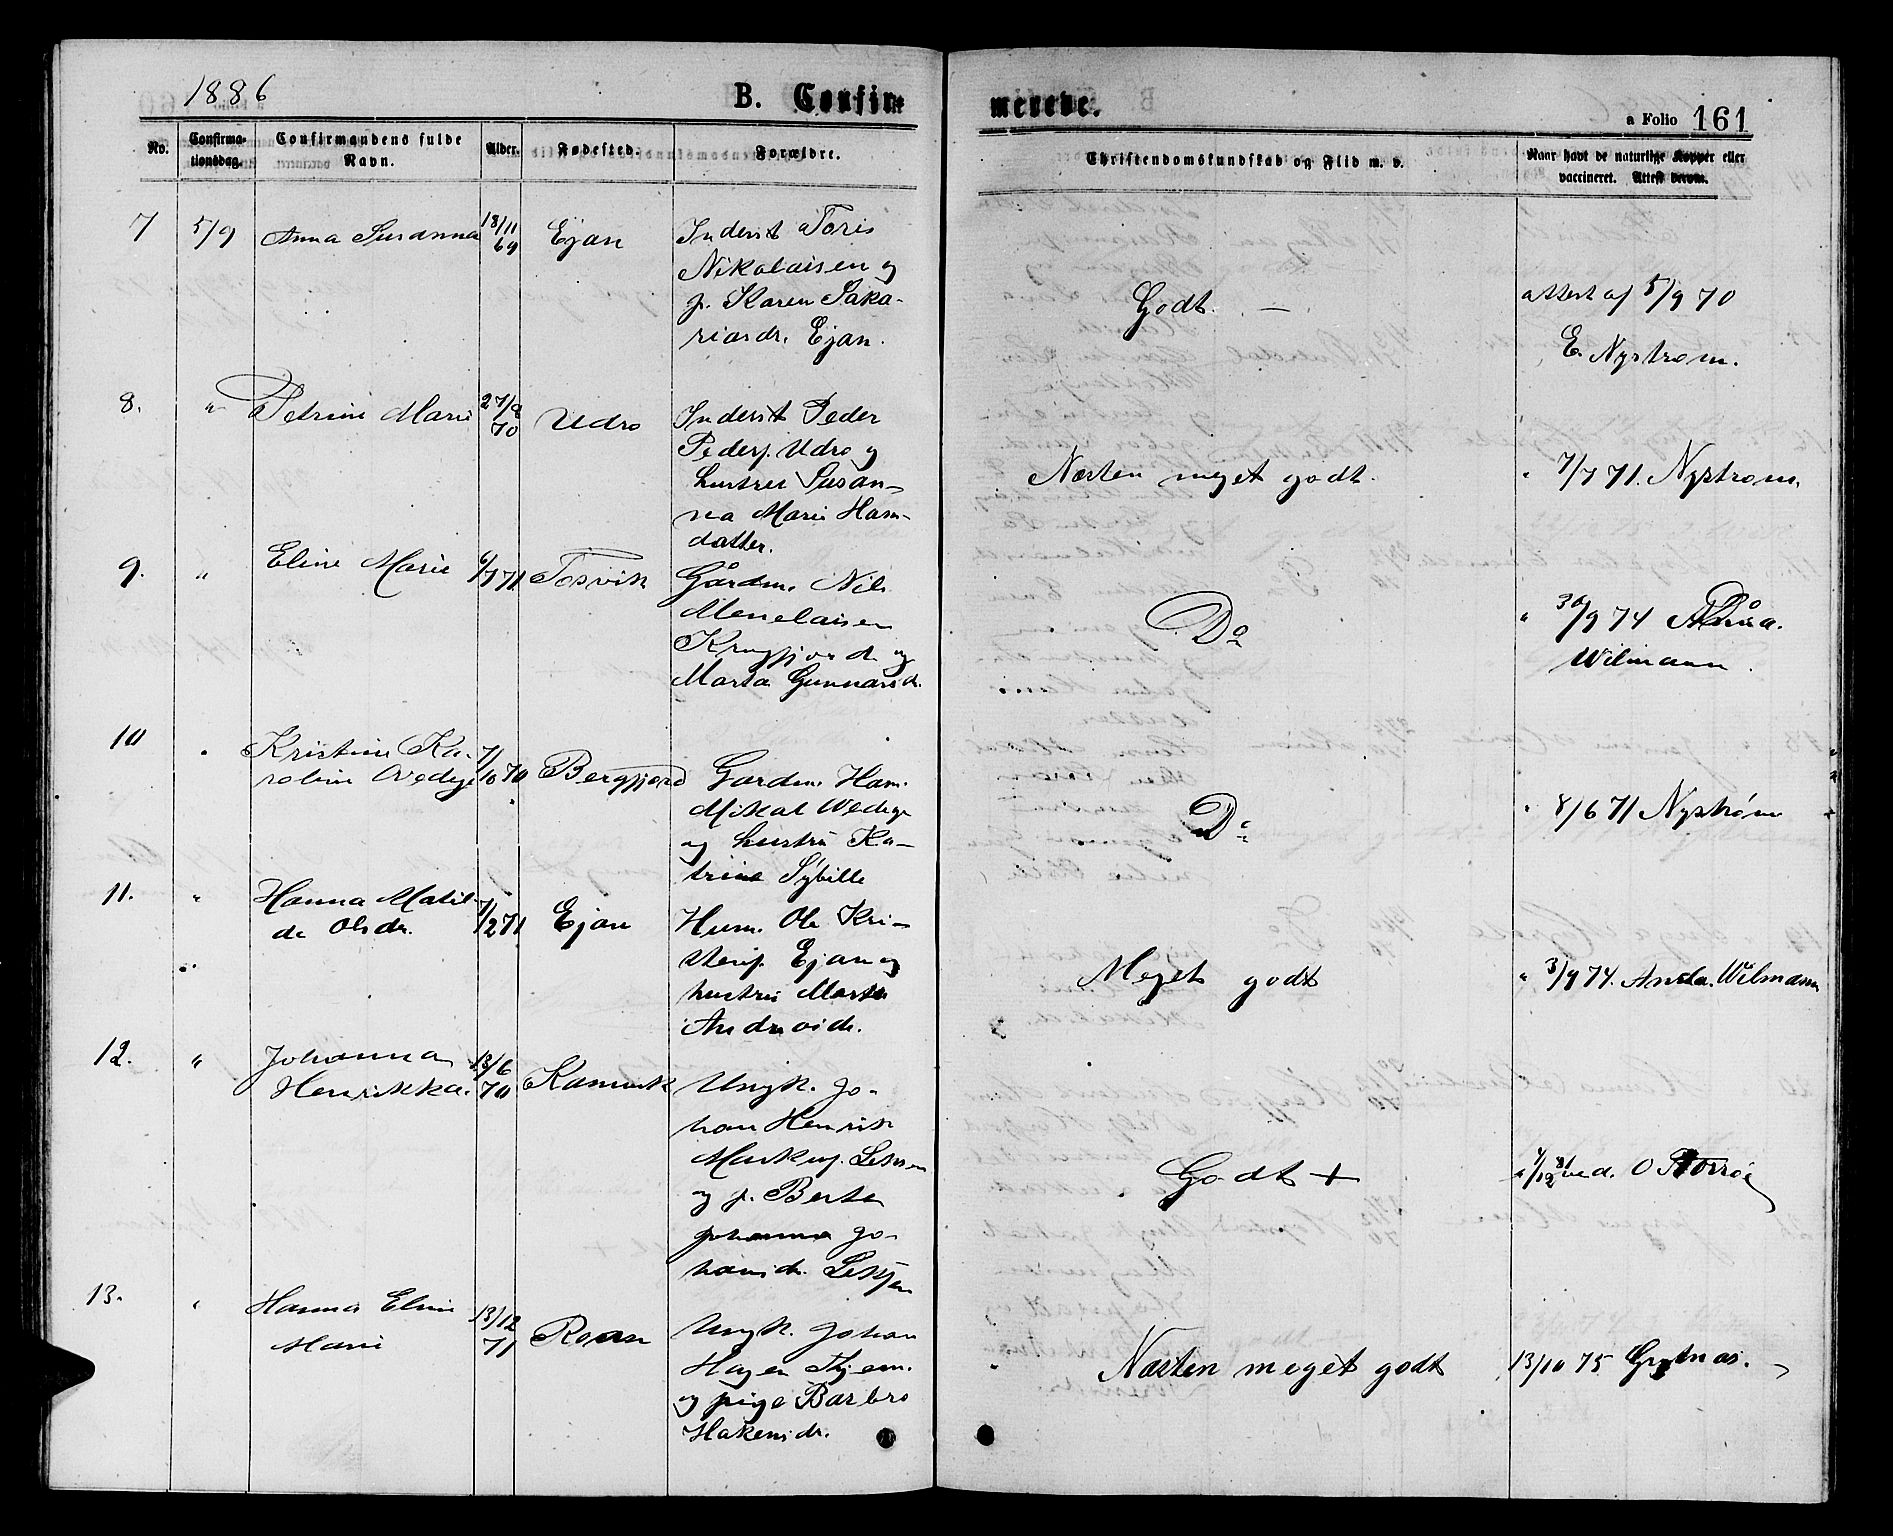 1886
B. Confir-
merede.
a Folio 161
No.
Confirma-
tionsdag.
Confirmandens fulde
Navn.
Alder.
Fødested.
Forældre.
Christendomskundskab og Flid m. v.
Naar havt de naturlige Kopper eller
vaccineret. Attest derom.
7 5/9 Anna Susanna 18/11 69 Ejan Inderst Toris
Nikolaisen og
p. Karen Saka-
riasdr. Ejan.
Godt. —
attest af 5/9 70
E. Nystrom.
8. " Petrine Marie 27/8 70 Udro Inderst Peder
Peders. Udro og
hustru Susan-
na Marie Hans-
datter.
Næsten meget godt.
" 7/7 71. Nystrom.
9. " Eline Marie 6/7 71 Tosvik Gårdm. Nils
Menelaisen
og
Marta Gunnarsd.
Do
" 30/9 74
Wilmann.
10 " Kristine Ka-
roline Wedege 7/10 70 Bergfjord Gardm. Hans
Mikal Wedege
og hustru Ka-
trine Sybille
Do
" 8/6 71 Nystrøm
11. " Hanna Matil-
de Olsdr. 7/2 71 Ejan Husm. Ole Kri-
stens. Ejan og
hustru Marta
Meget godt
" 3/9 74. Wilmann
12. " Johanna
Henrikka. 13/6 70 Ungk. Jo-
han Henrik
og p. Berta
Johanna Jo-
hansdr.
Godt +
ved. O
13. " Hanna Eline
Marie 13/12 71 Roan Ungk. Johan
Hagen
og pige Barbro
Hakensdr.
Næsten meget godt
13/10 75